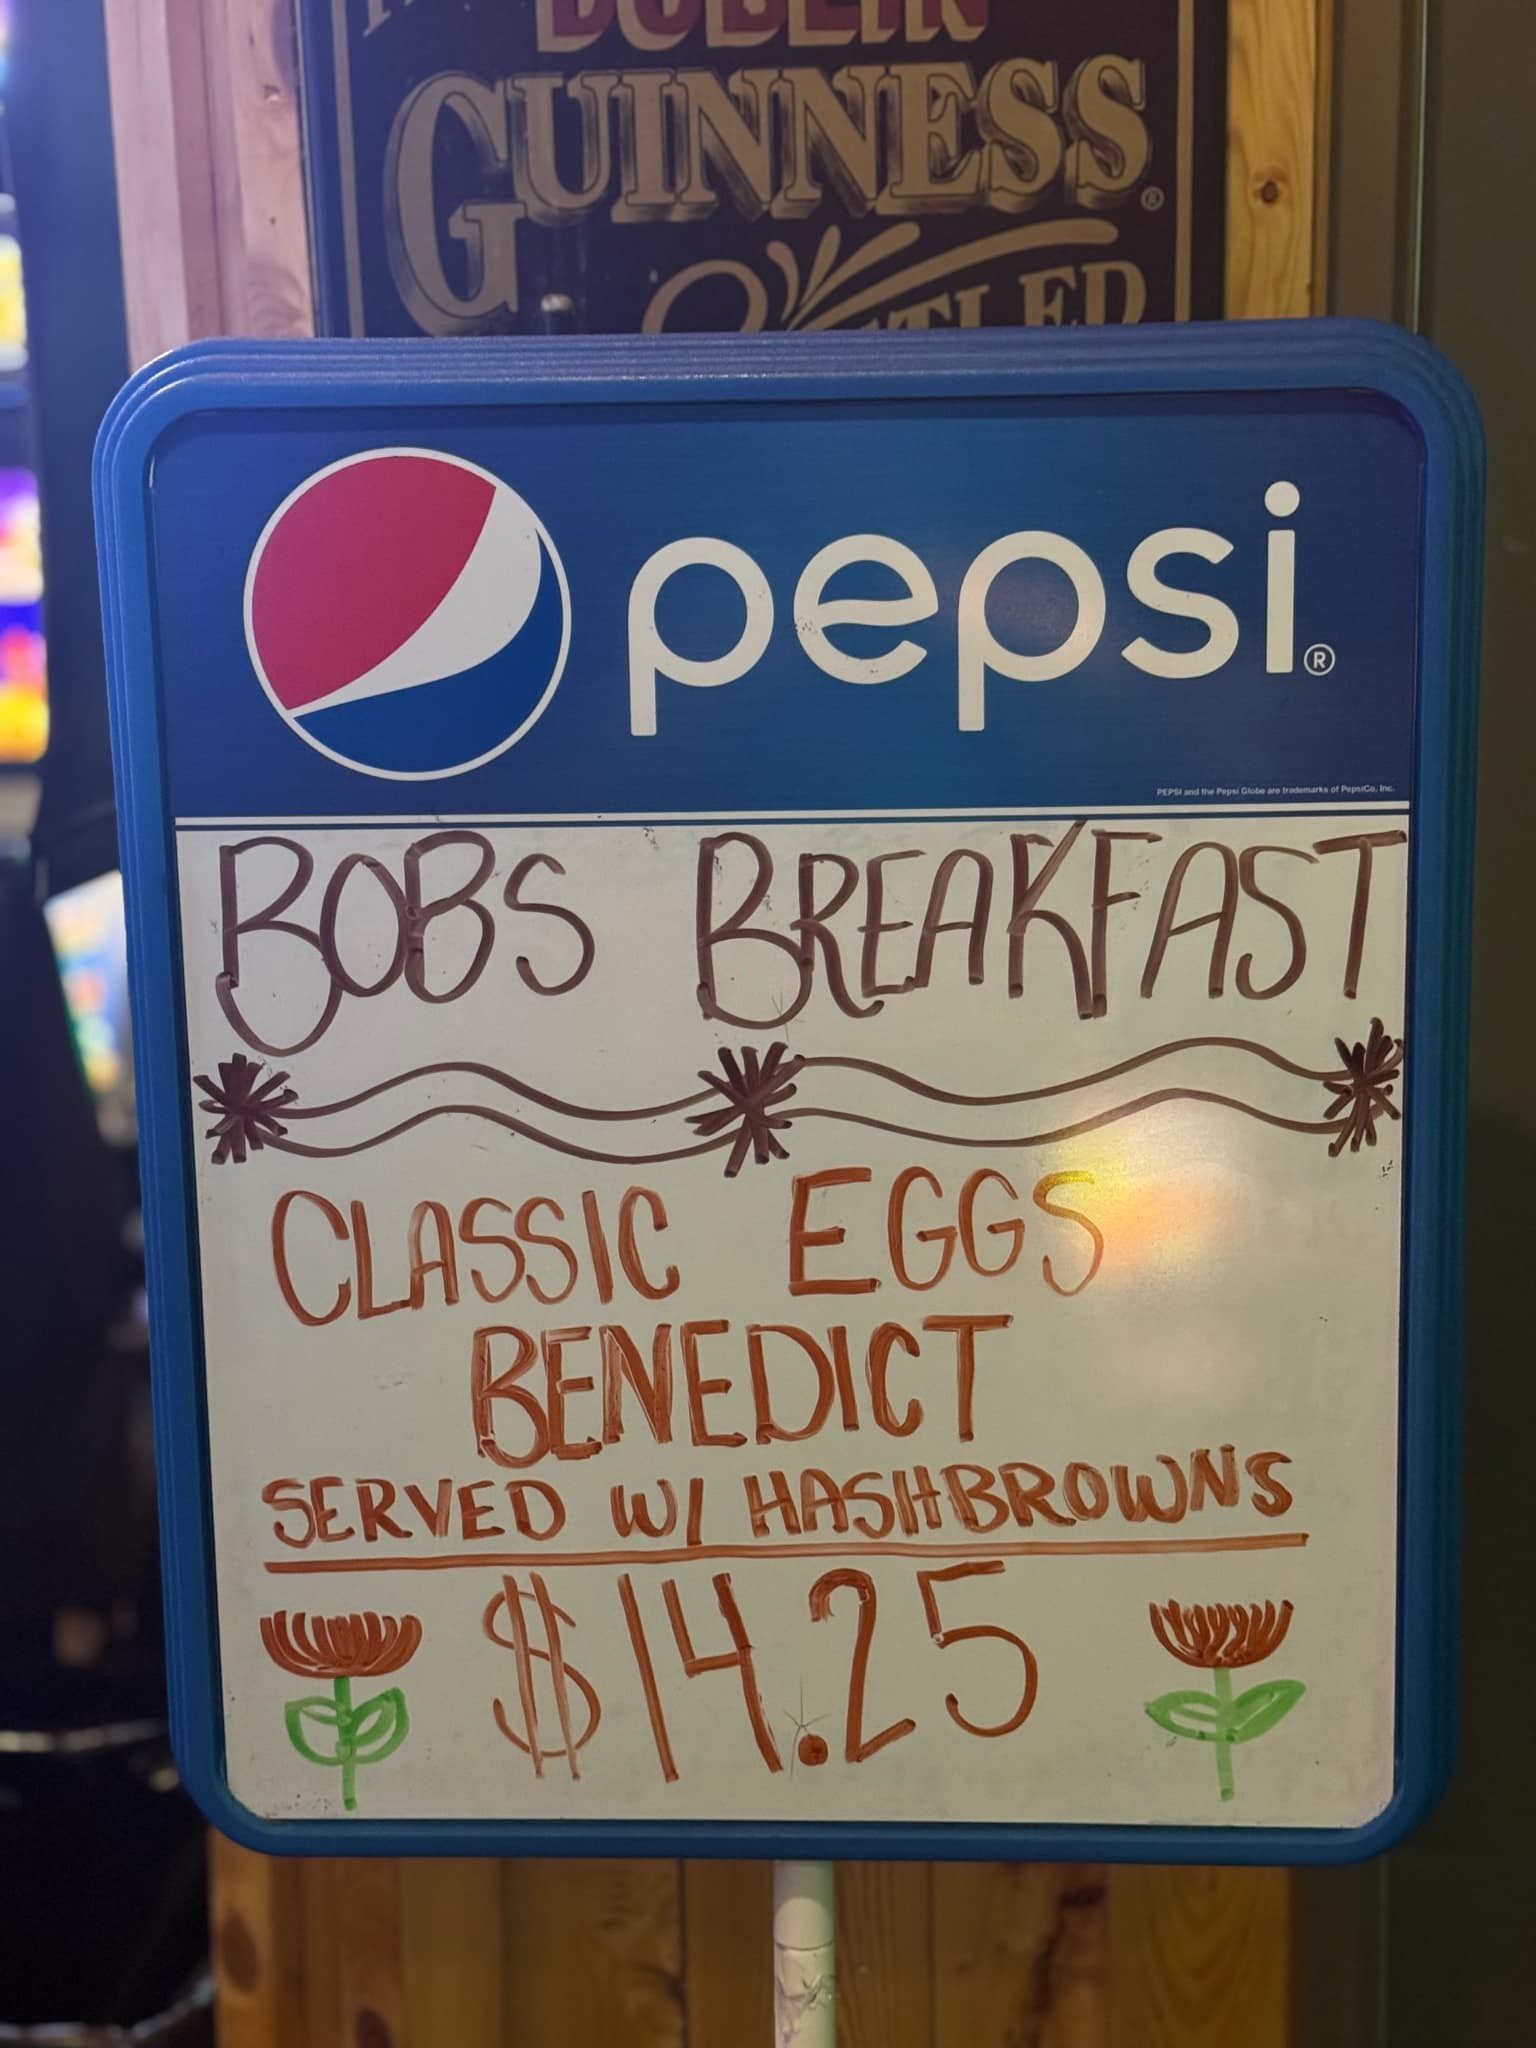 DUBLIN
GUINNESS®
pepsi®
PEPSI and the Pepsi Globe are trademarks of PepsiCo, Inc.
BOBS BREAKFAST
CLASSIC EGGS
BENEDICT
SERVED W/ HASHBROWNS
$14.25